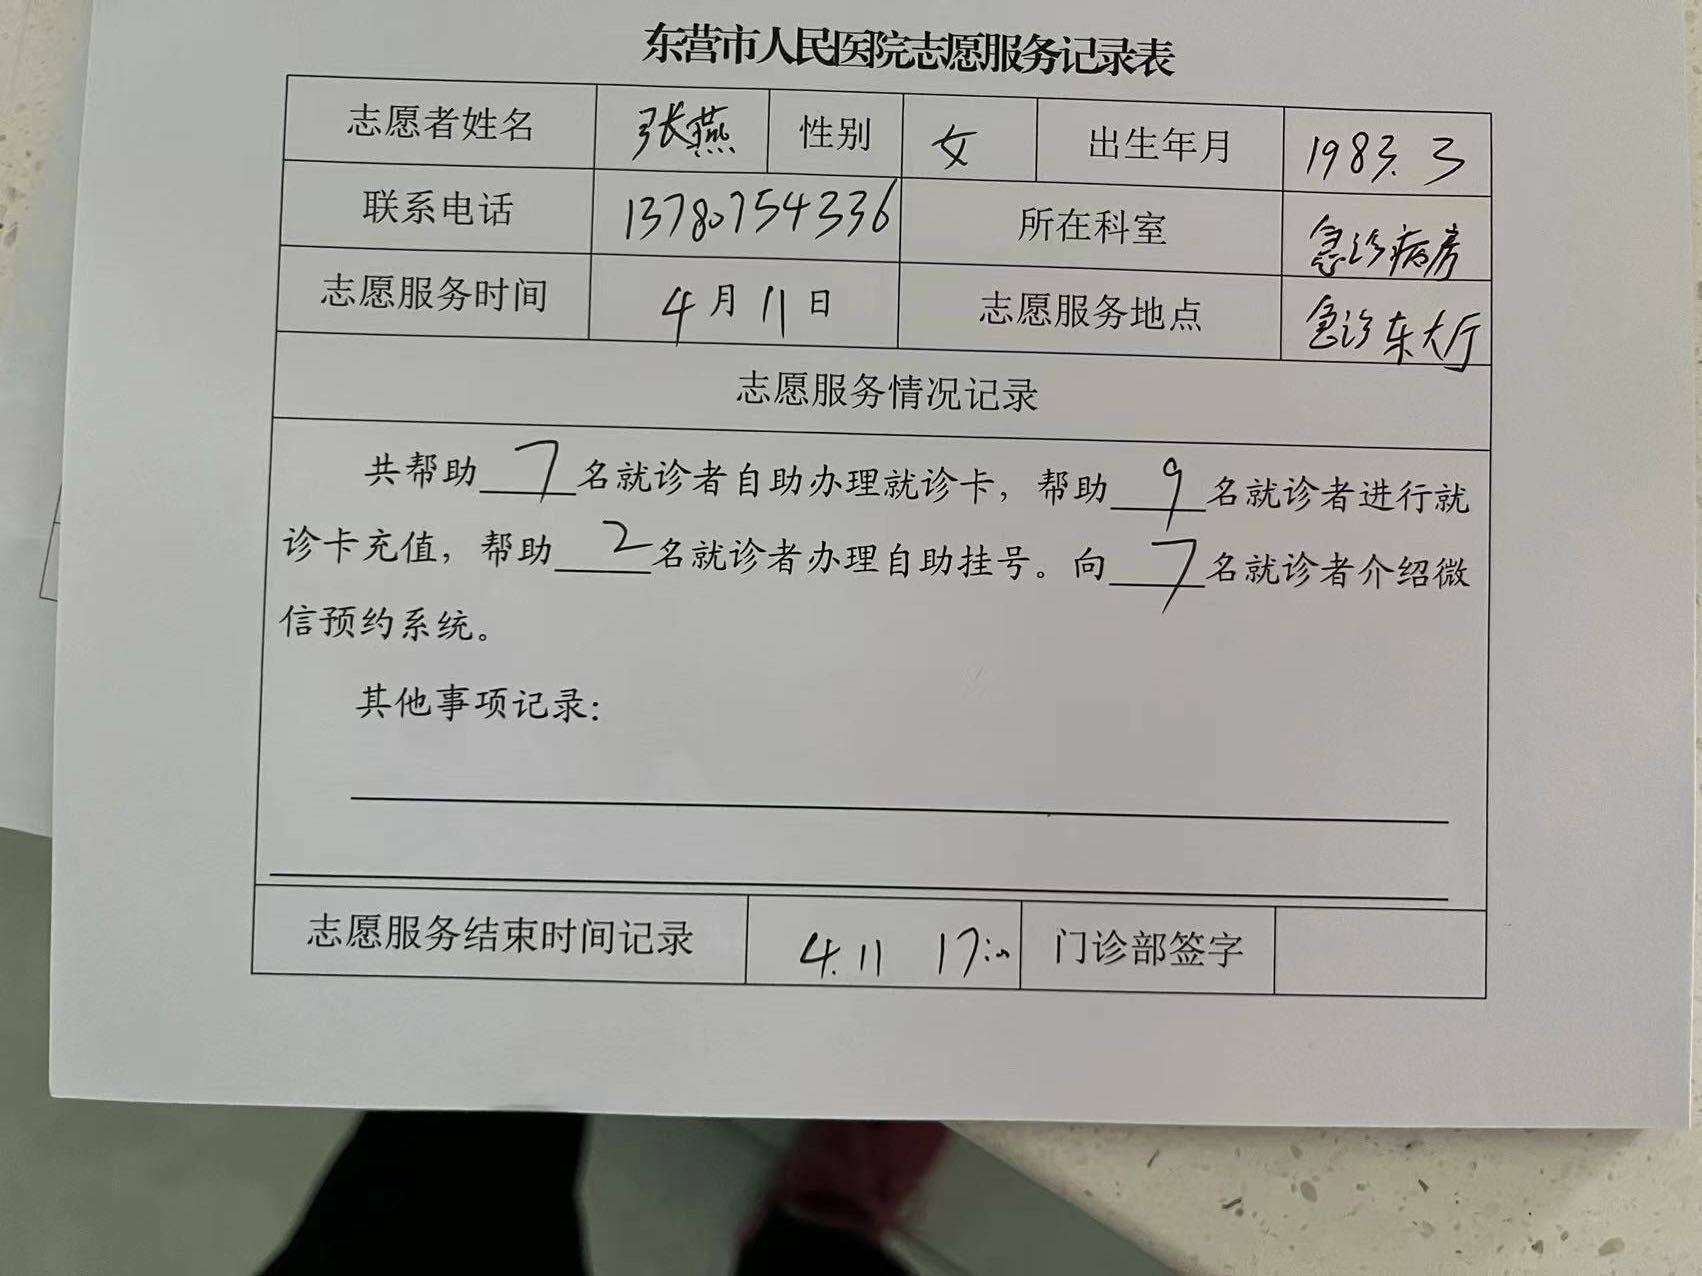 东营市人民医院志愿服务记录表
志愿者姓名 张燕 性别 女 出生年月 1983.3
联系电话 13780754336 所在科室 急诊病房
志愿服务时间 4月11日 志愿服务地点 急诊东大厅
志愿服务情况记录
共帮助 7 名就诊者自助办理就诊卡，帮助 9 名就诊者进行就
诊卡充值，帮助 2 名就诊者办理自助挂号。向 7 名就诊者介绍微
信预约系统。
其他事项记录：
志愿服务结束时间记录 4.11 17:00 门诊部签字